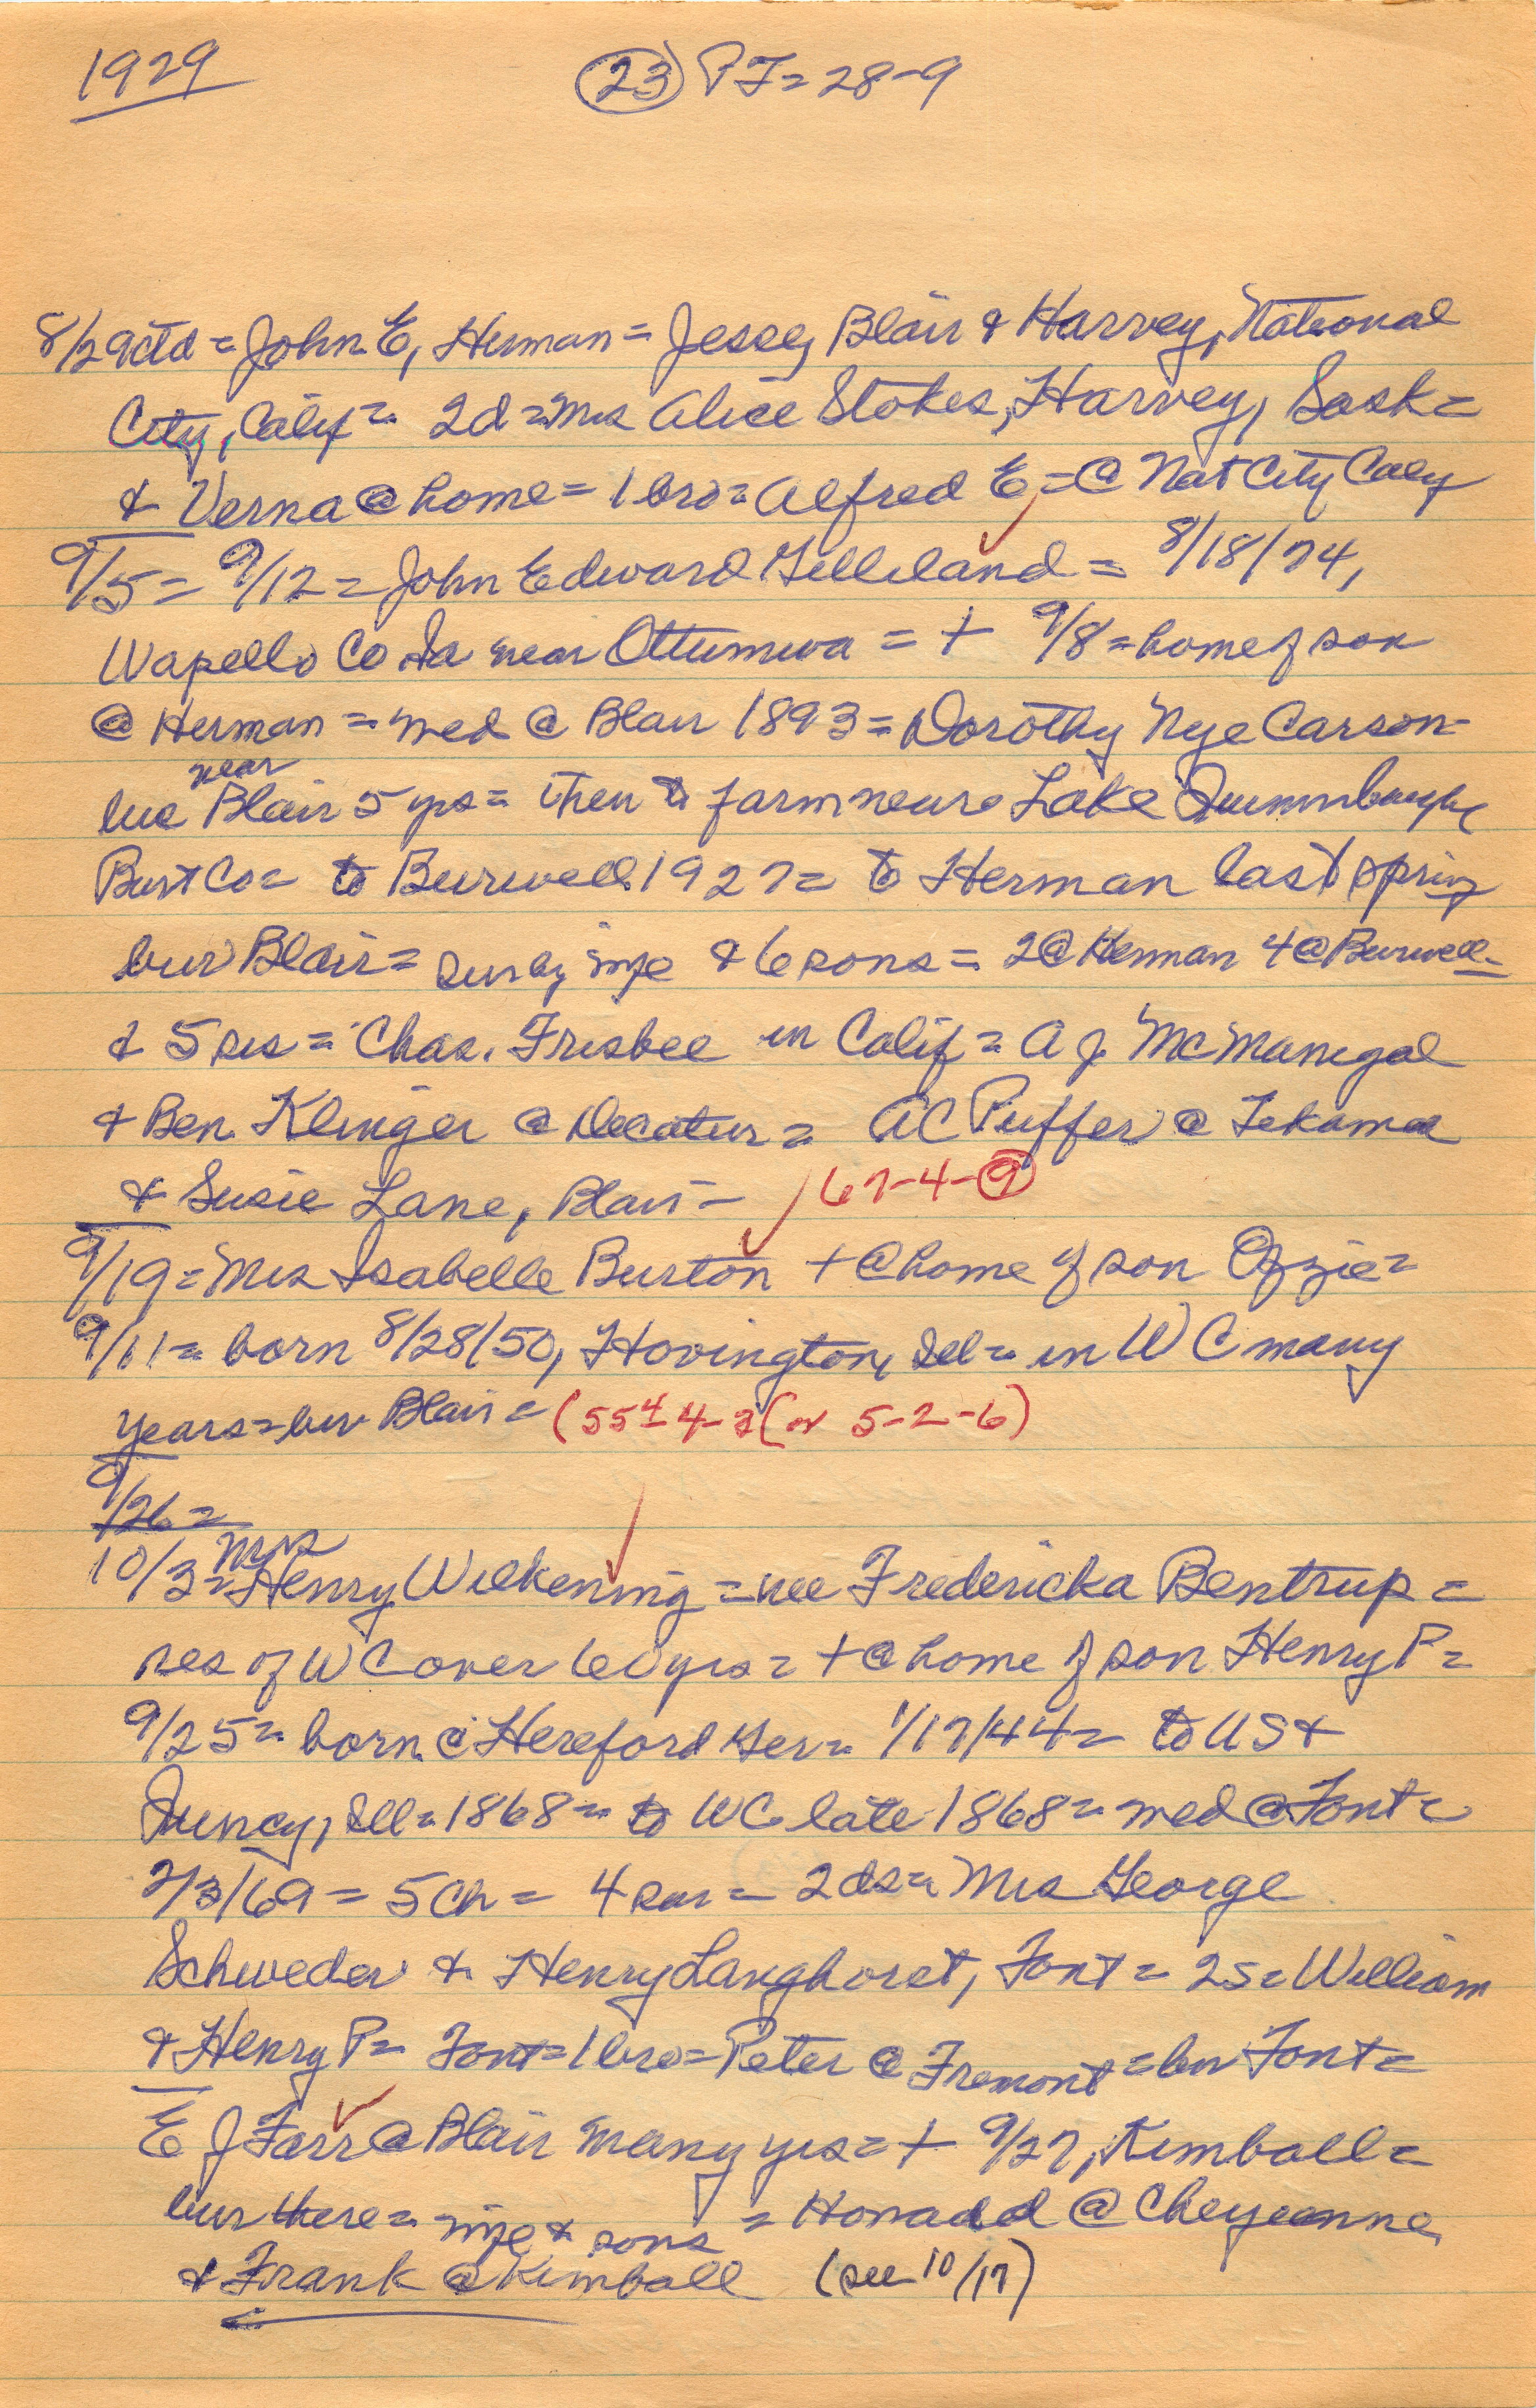 1929 (23) PT = 28-9
8/29 ctd = John E, Herman = Jesse, Blair & Harvey, National
City, Calif = 2d = Mrs Alice Stokes, Harvey, Sask =
& Verna @ home = 1 bro = Alfred E = @ Nat City Calif
9/5 = 9/12 = John Edward Gilleland = 8/18/74,
Wapello Co Ia near Ottumwa = + 9/8 = home of son
@ Herman = med @ Blair 1893 = Dorothy Nye Carson =
near
live Blair 5 yrs = then to farm near Lake Quinnbaugh
Burt Co = to Burwell 1927 = to Herman last spring
bur Blair = sur by wife & 6 sons = 2 @ Herman 4 @ Burwell =
& 5 sis = Chas. Frisbee in Calif = A J McManigal
& Ben Klinger @ Decatur = AC Puffer @ Tekama
& Susie Lane, Blair = 67-4-9
9/19 = Mrs Isabelle Burton + @ home of son Ozzie =
9/11 = born 8/28/50, Hovington, Del = in WC many
years = bur Blair = (55 4-2 (or 5-2-6)
9/26 =
Mrs
10/3 = Henry Wilkening = nee Fredericka Bentrup =
res of WC over 60 yrs = + @ home of son Henry P =
9/25 = born @ Hereford Ger = 1/17/44 = to US &
Quncy, Ill = 1868 = to WC late 1868 = med @ Font =
2/3/69 = 5 Ch = 4 sur = 2 ds = Mrs George
Schweder & Henry Langhorst, Font = 2s = William
& Henry P = Font = 1 bro = Peter @ Fremont = bur Font =
E J Farr @ Blair many yrs = + 9/27, Kimball =
bur there = wife & sons = Honadd @ Cheyenne
& Frank @ Kimball (see 10/17)